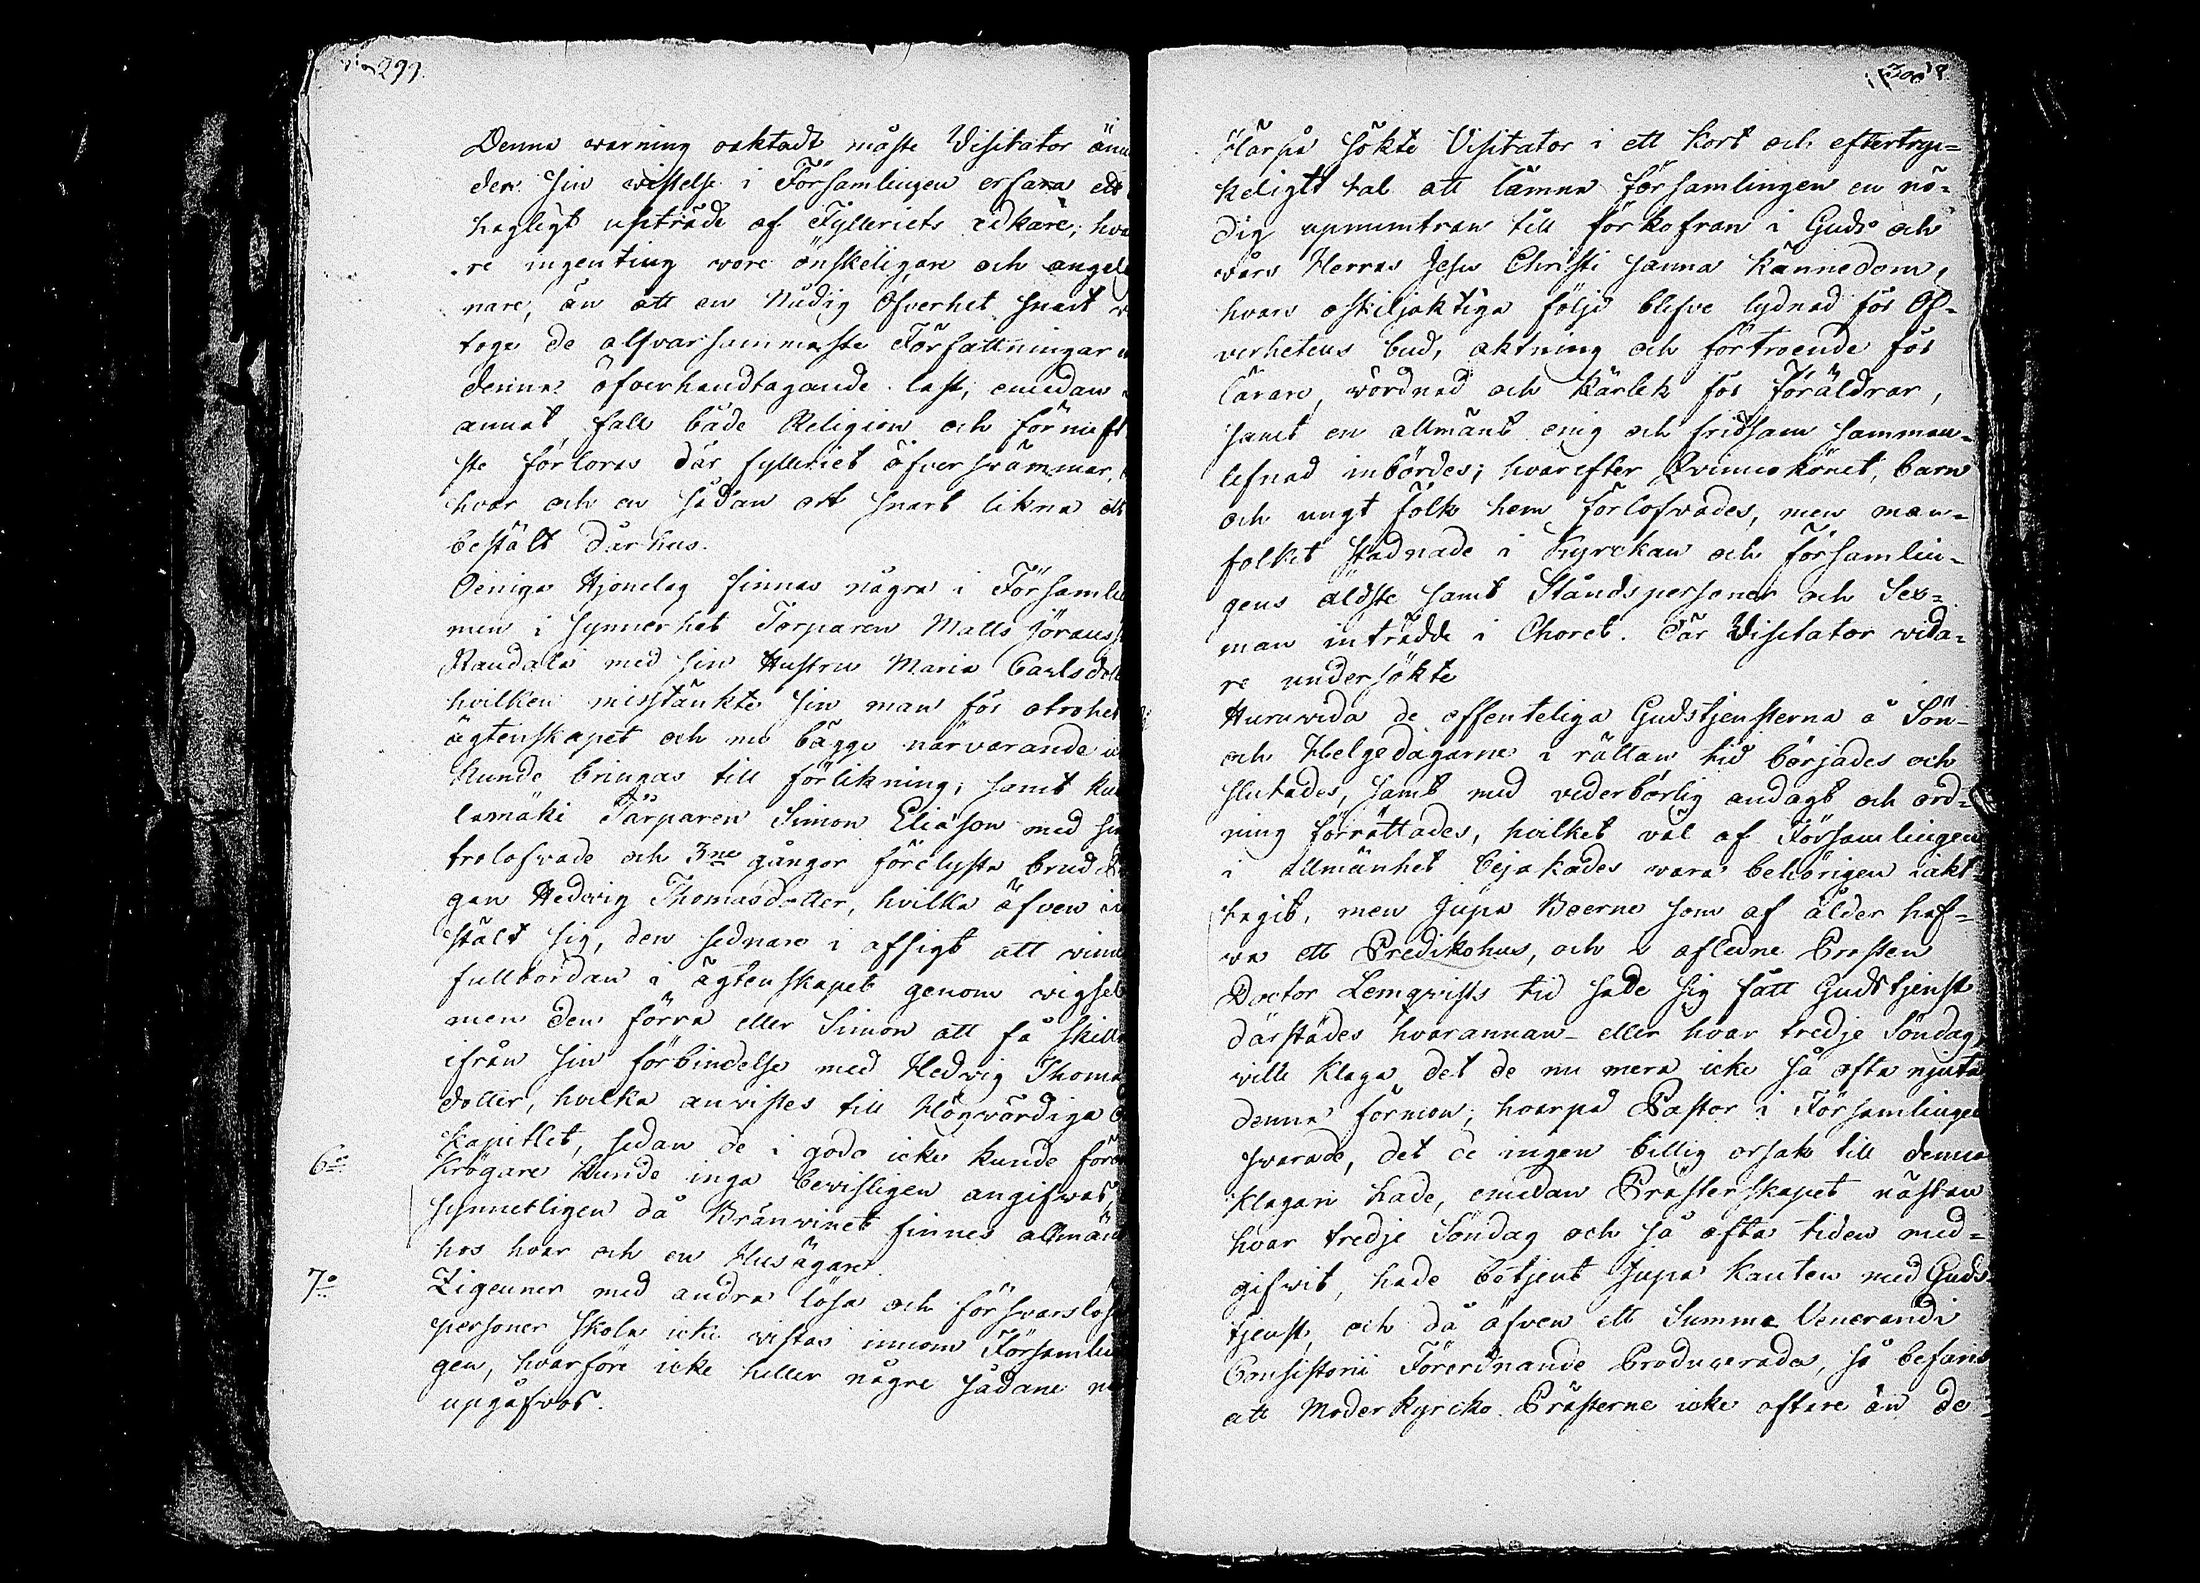 299.
Denna warning oaktadt måste Visitator änn
der sin wistelse i Församlingen erfara ett
hagligt upträde af Fylleriets idkare; hva
re ingenting wore önskeligare och angel
nare, än att en Nådig Öfverhet snart
toge de alfvarsammaste Författningar
denna öfverhandtagande last, emedan
annat fall både Religion och förnuft
ste förloras där fylleriet öfversvämmar,
hvar och en sådan ort snart likna ett
bestält dårhus.
Oeniga Hjonelag finnas några i Församli
men i synnerhet Torparen Matts Jöranss
Raudala med sin Hustru Maria Carlsdott
hvilken misstänkte sin man för otrohet
ägtenskapet och nu bägge närvarande
kunde bringas till förlikning; samt
lamäki Torparen Simon Eliason med sin
trolofvade och 3ne gångor förelysta brud
gan Hedvig Thomasdotter, hvilka äfven in
stält sig, den sednare i afsigt att vinna
fullbordan i ägtenskapet genom vigsel
men den förra eller Simon att få skilln
ifrån sin förbindelse med Hedvig Thomas
dotter, hvilka anvistes till Högvördiga
kapitlet, sedan de i godo icke kunde för
6o Krögare kunde inga bevisligen angifvas,
synnerligen då Bränvinet finnes allmänt
hos hvar och en Husägare.
7o Zigeuner med andra lösa och försvarslösa
personer skola icke vistas innom Församlin
gen, hvarföre icke heller någre sådane nu
upgåfvos.
300
Härpå sökte Visitator i ett kort och eftertryc=
keligt tal att lämna församlingen en nö=
dig upmuntran till förkofran i Guds och
vårs Herras Jesu Christi sanna kännedom,
hvars oskiljaktiga följd blefve lydnad för Öf=
verhetens bud, aktning och förtroende för
Lärare, wördnad och kärlek för Föräldrar,
samt en allmänt enig och fridsam samman=
lefnad inbördes; hvarefter Qvinnokönet, barn
och ungt folk hem förlofvades, men man=
folket stadnade i Kyrckan och församlin=
gens äldste samt Ståndspersoner och Sex=
män inträdde i Choret. Där Visitator vida=
re undersökte
Huruvida de offenteliga Gudstjensterna å Sön-
och Helgedagarne i rättan tid börjades och
slutades, samt med vederbörlig andagt och ord=
ning förrättades, hvilket väl af Församlingen
i allmänhet bejakades vara behörigen iakt=
tagit, men Jupa Boerne som af ålder haf=
va ett Predikohus, och i afledne Prosten
Doctor Lemqvists tid sade sig fått Gudstjenst
därstädes hvarannan- eller hvar tredje Söndag,
ville klaga det de nu mera icke så ofta njuta
denna förmon; hvarpå Pastor i Församlingen
svarade, det de ingen billig orsak till denna
klagan hade, emedan Prästerskapet nästan
hvar tredje Söndag och så ofta tiden med=
gifvit, hade betjent Jupa kanten med Guds
tjenst, och då äfven ett Summe Venerandi
Consistorii Förordnande Producerades, så befans
att Moderkyrcko Prästerne icke oftare än de=